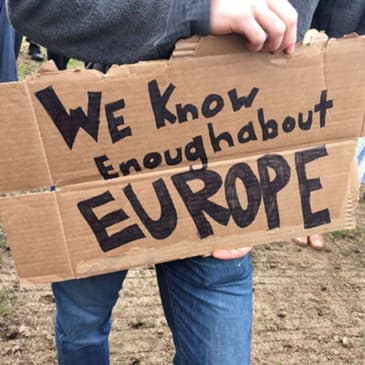 We Know
Enoughabout
EUROPE